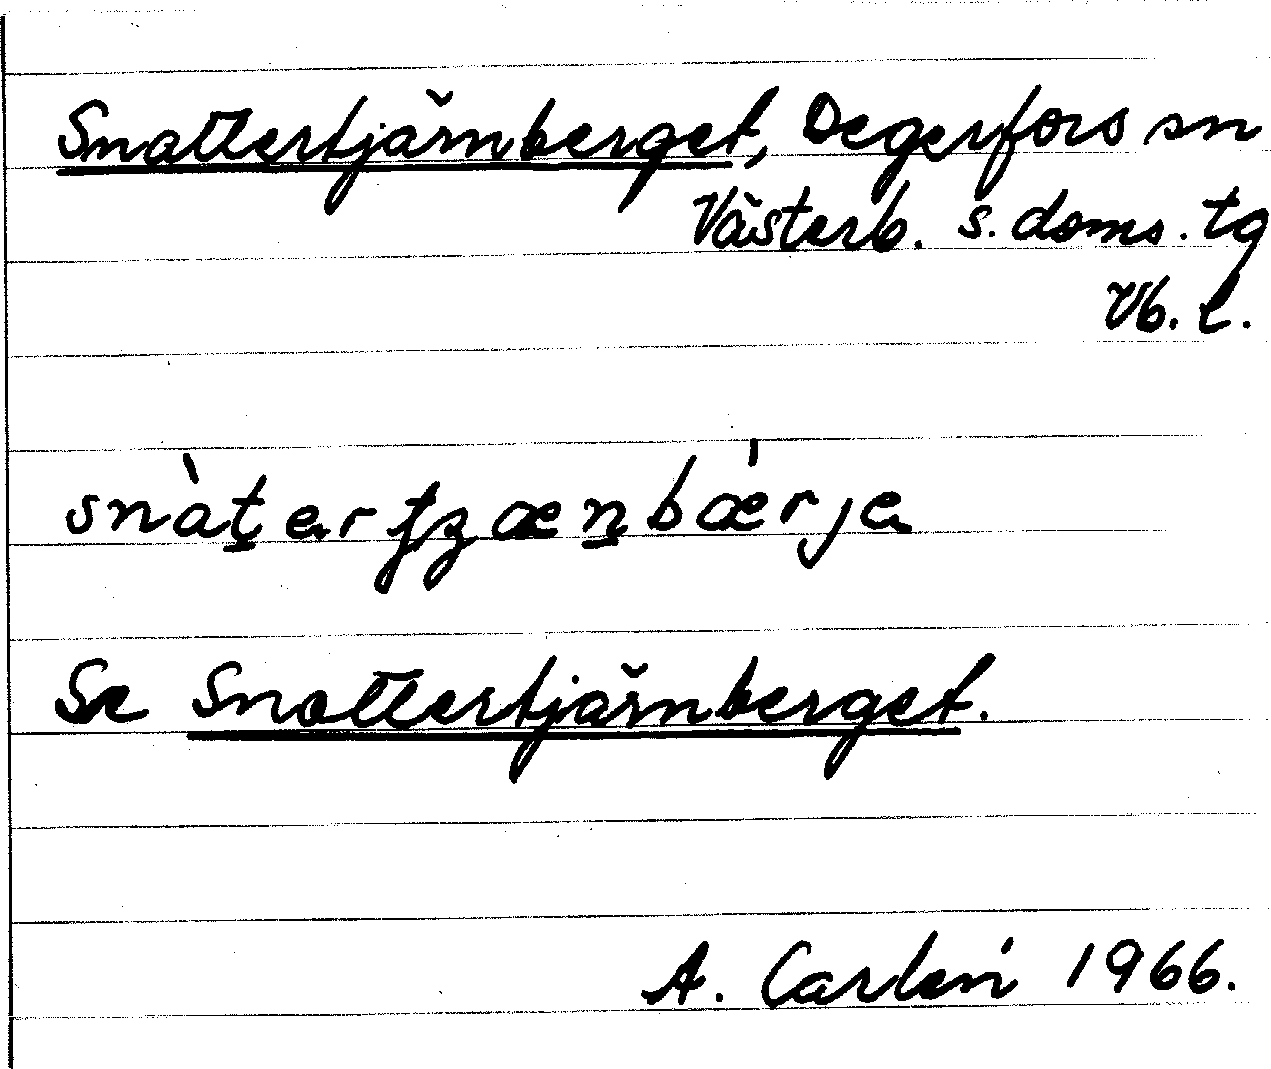 Snattertjärnberget, Degerfors sn
Västerb. s. doms. tg
Vb. l.
snàt̲erʈʐæn̲bǽrje
Se Snottertjärnberget.
A. Carlén 1966.